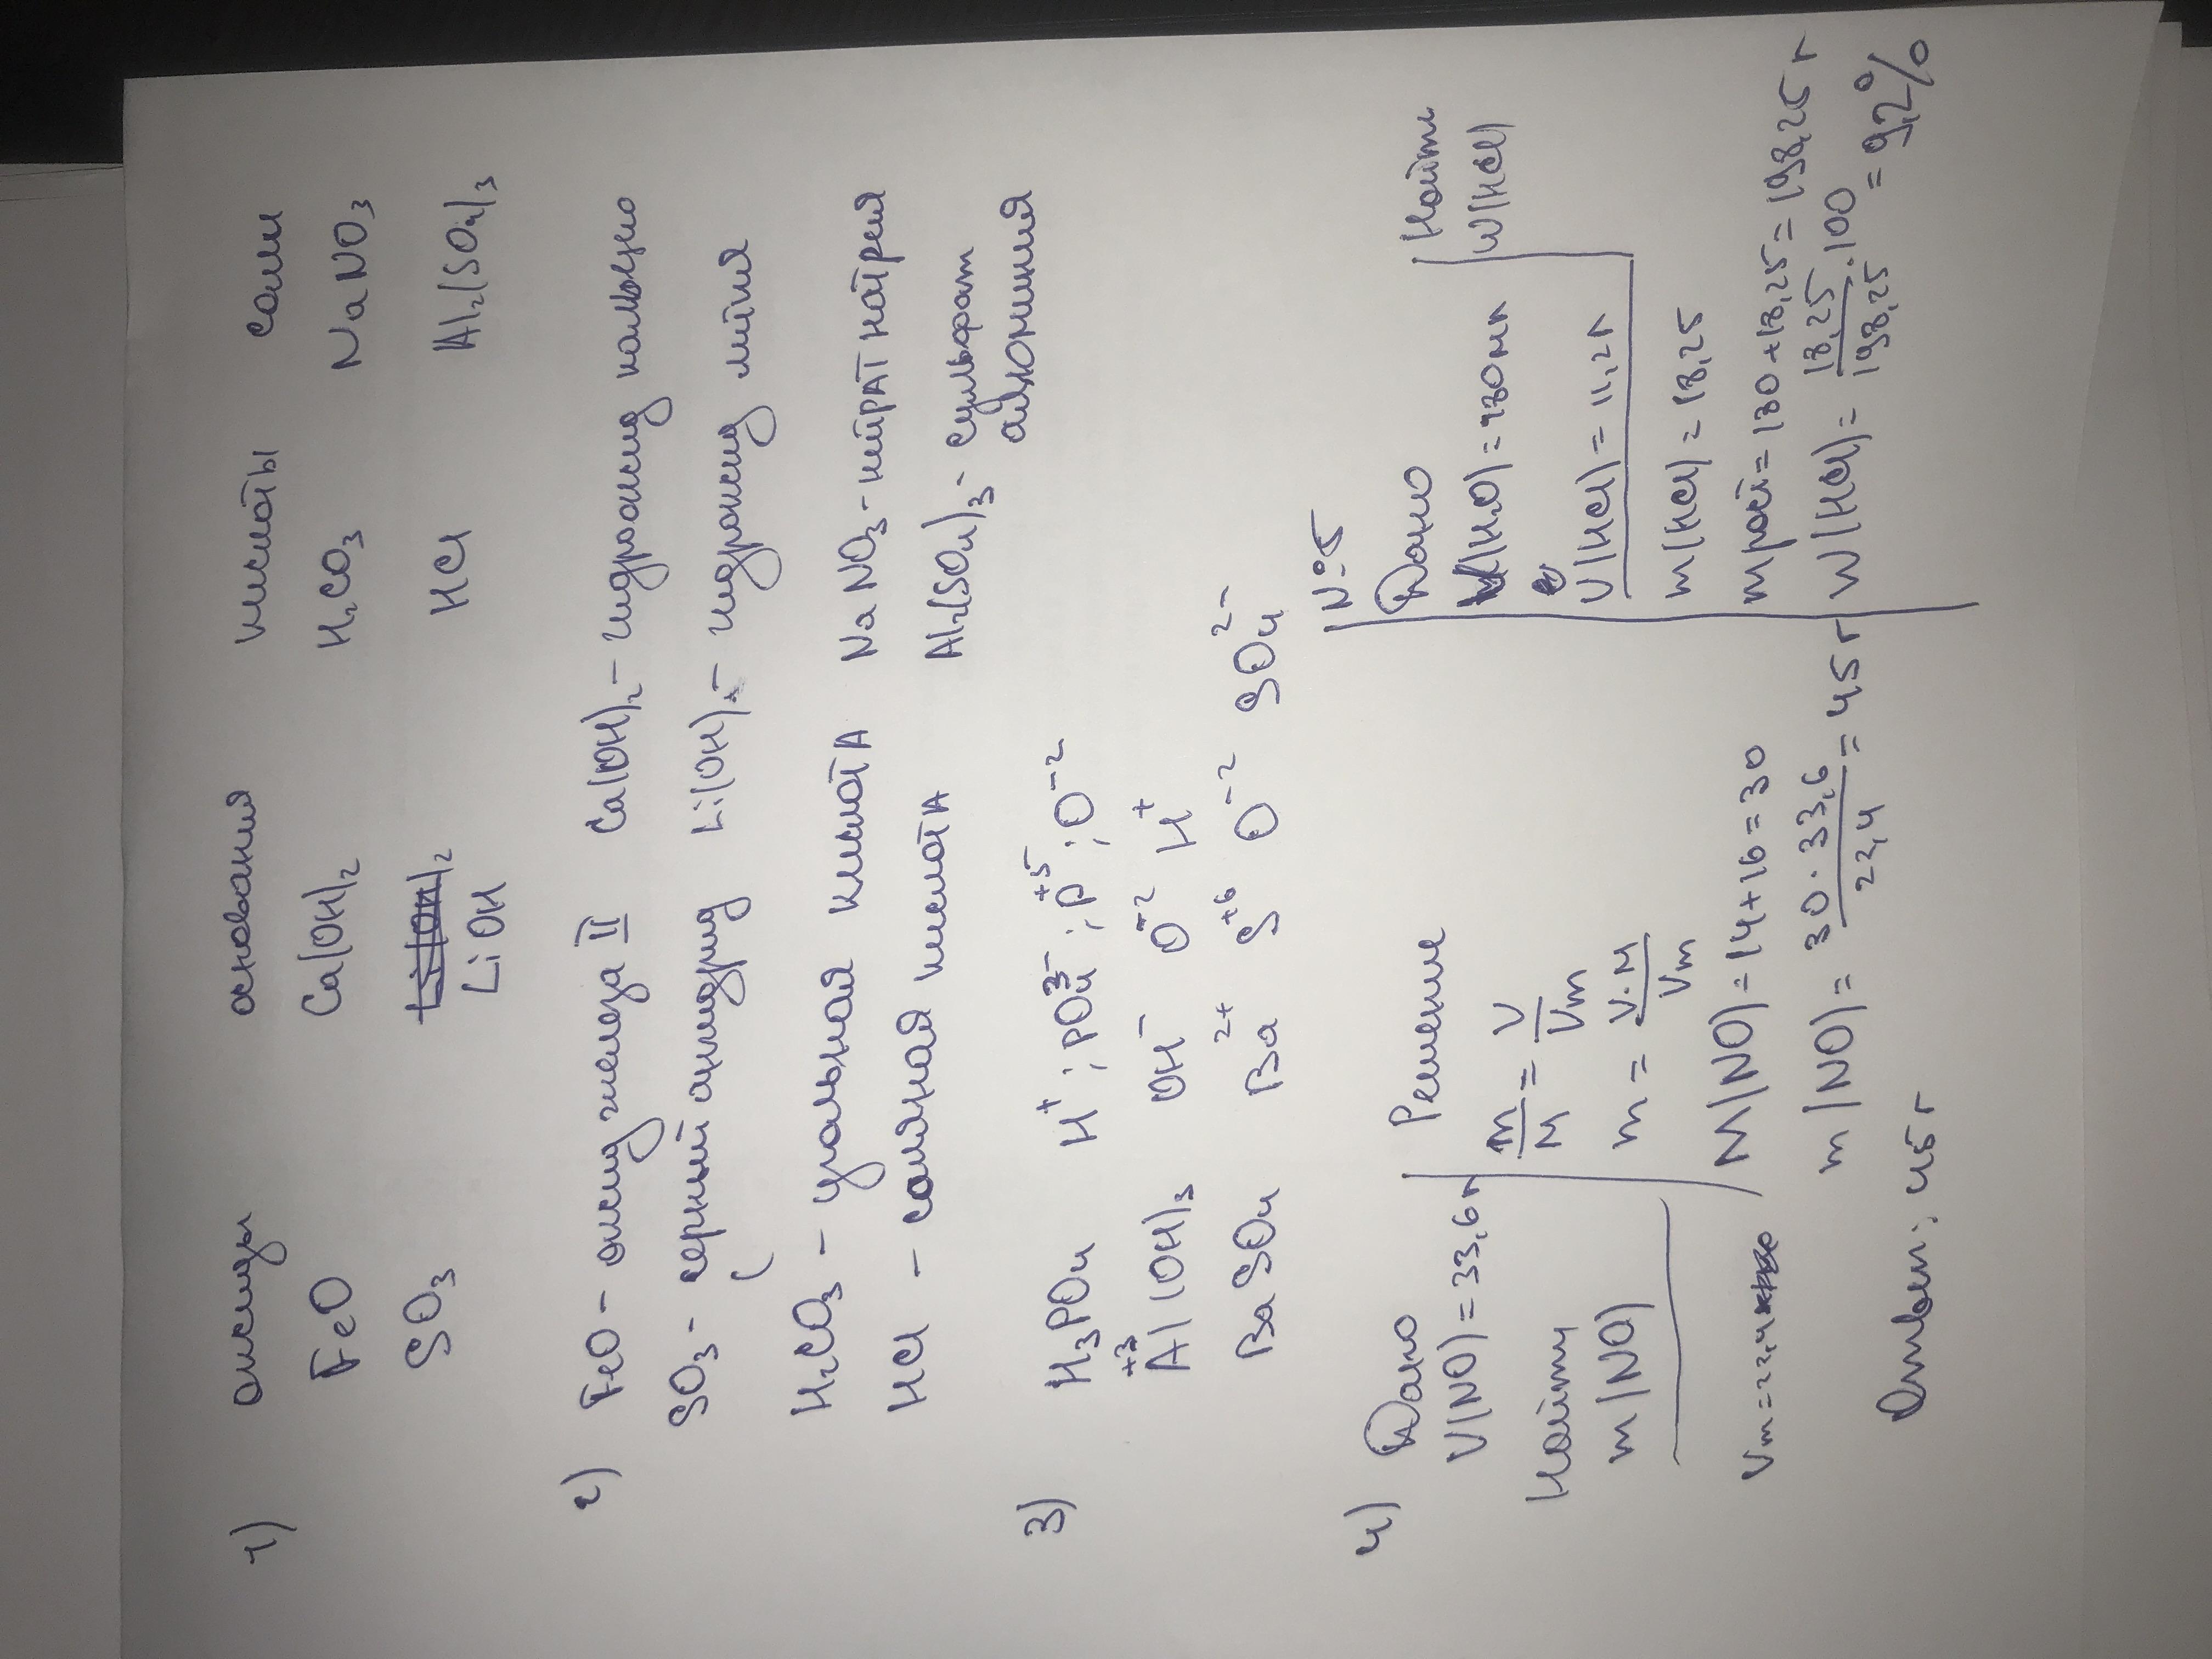 1) оксиды основания кислоты соли
FeO Ca(OH)2 H2CO3 NaNO3
SO3 LiOH HCl Al2(SO4)3
2) FeO - оксид железа II Ca(OH)2 - гидроксид кальцию
SO3 - серный ангидрид Li(OH) - гидроксид лития
H2CO3 - угольная кислотА NaNO3 - нитрАТ натрия
HCl - соляная кислотА Al2(SO4)3 - сульфат
алюминия
3) H3PO4 H+ ; PO4 3- ; P+5 ; O-2
Al+3(OH)3 OH- O-2 H+
BaSO4 Ba 2+ S+6 O-2 SO4 2-
4) Дано Решение
V(NO) = 33,6 л m/M = V/Vm
Найти m = V·M/Vm
m(NO) M(NO) = 14+16 = 30
Vm = 22,4 m(NO) = 30·33,6/22,4 = 45 г
Ответ: 45 г
№5
Дано Найти
(H2O) = 180 мл W(HCl)
V(HCl) = 11,2 л
m(HCl) = 18,25
m раст = 180+18,25 = 198,25 г
W(HCl) = 18,25/198,25 · 100 = 9,2%